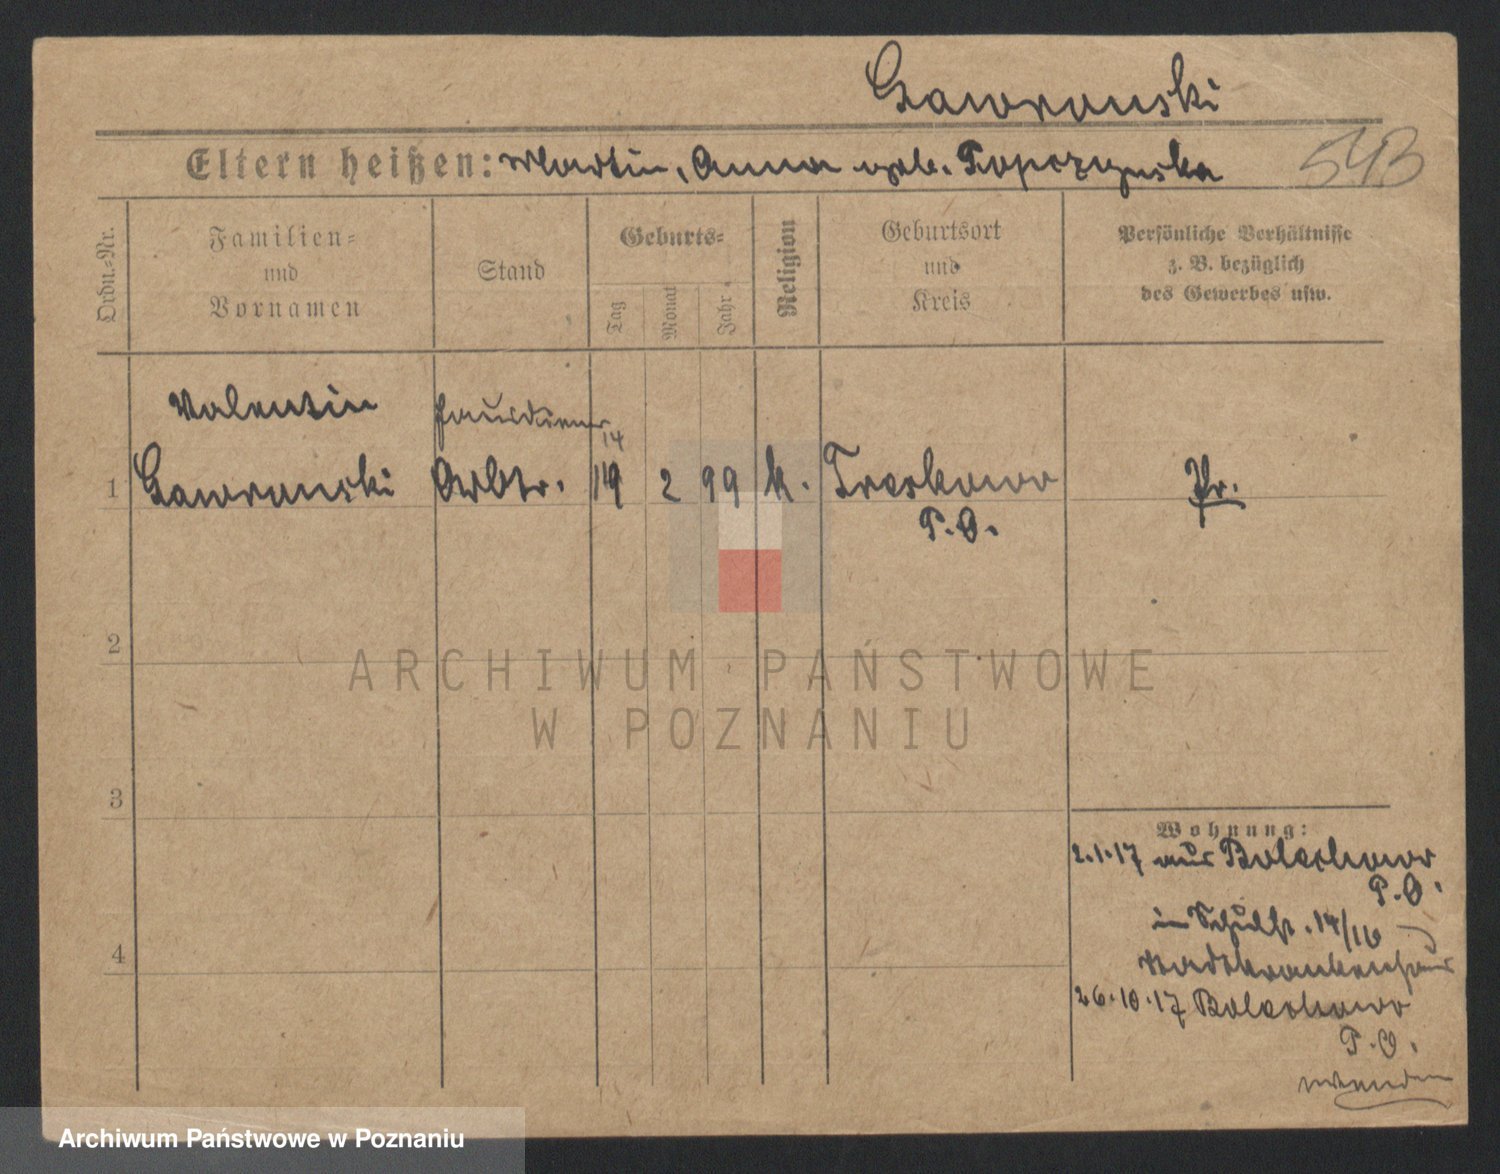 Gaworonski
Eltern heißen: Martin, Anna geb. Topczynska
543
Ordn.-Nr.
Familien=
und
Vornamen
Stand
Geburts=
Tag
Monat
Jahr
Religion
Geburtsort
und
Kreis
Persönliche Verhältnisse
z. B. bezüglich
des Gewerbes usw.
Valentin Hausdiener
14
1 Gaworonski Arbtr. 2 99 k. Treskowo Pr.
P.O.
2
3
4
Wohnung:
2.1.17 aus Bolechowo
P.O.
in Schulstr. 14/16
Stadtkrankenhaus
26.10.17 Bolechowo
P.O.
wenden
ARCHIWUM PAŃSTWOWE
W POZNANIU
Archiwum Państwowe w Poznaniu